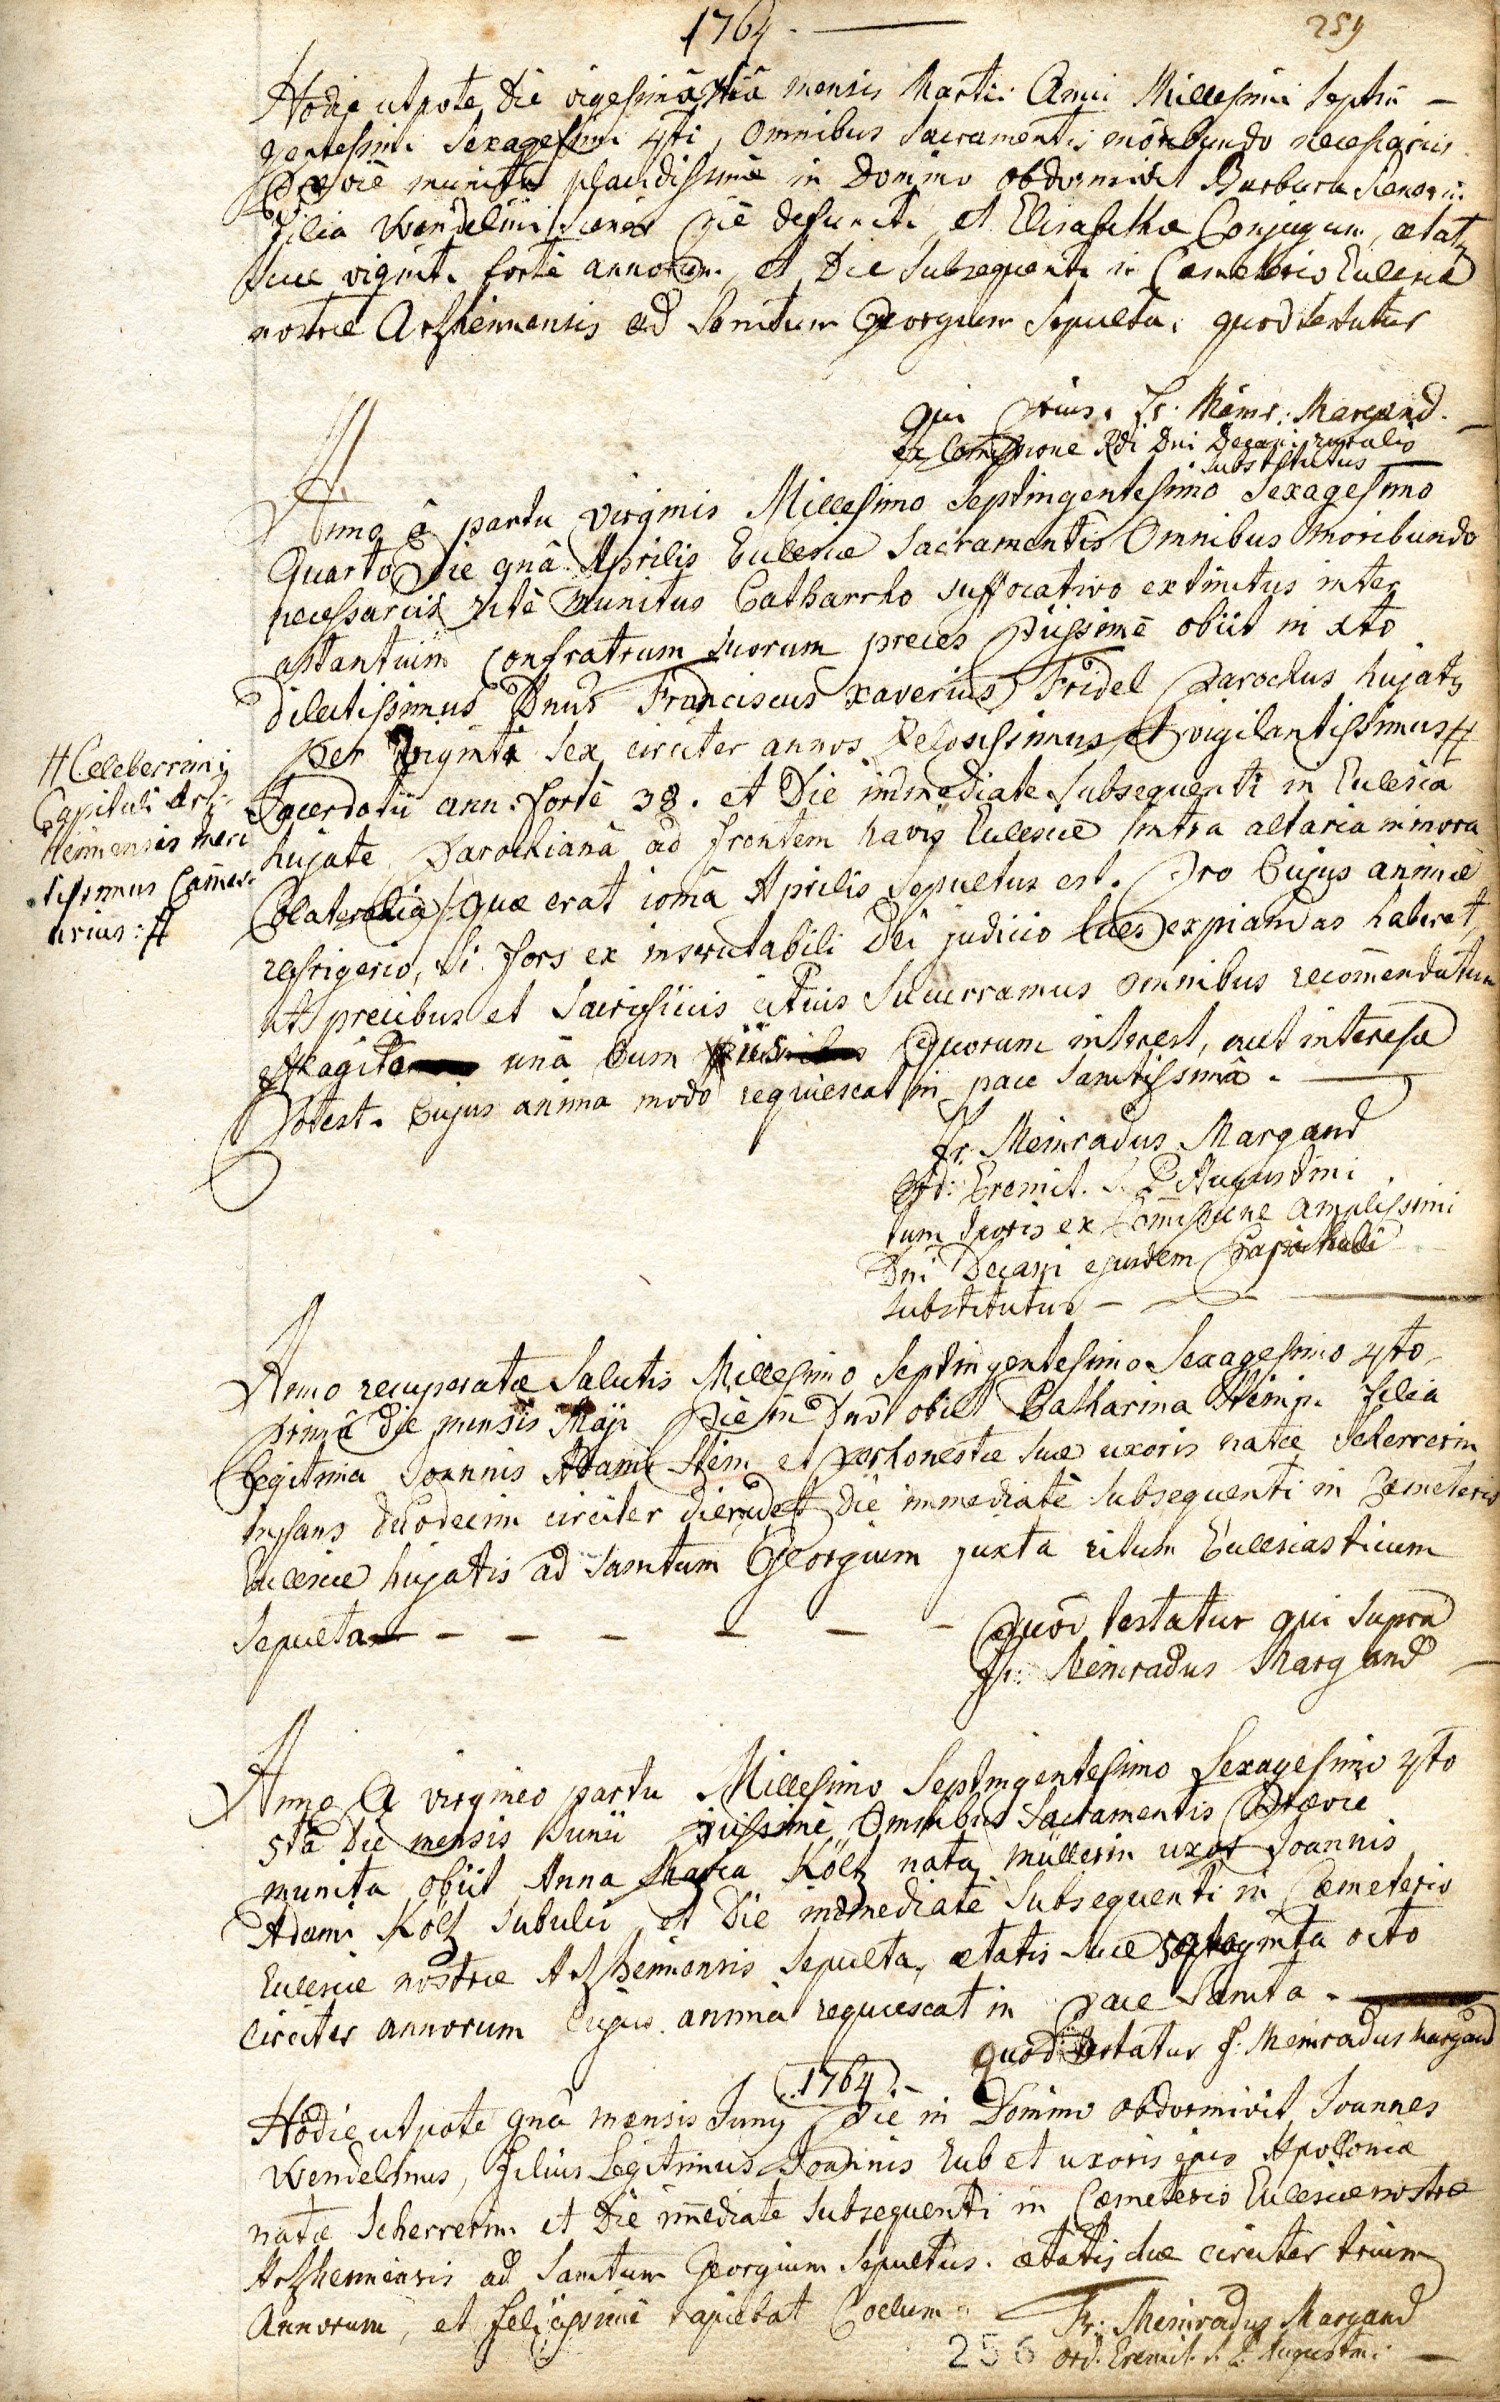 1764.
259
Hodie utpote Die vigesimâ mensis Martii Anni Millesimi Septin-
gentesimi Sexagesimi 4ti, Omnibus Sacramentis moribundo necessariis
munita placidissimè in Domino obdormivit Barbara
filia Wendelini piè defuncti et Elisabethæ Conjugum, ætatis
suæ viginti fortè annorum, et Die subsequenti in Cæmeterio Ecclesiæ
nostræ Arzhemiensis ad Sanctum Georgium Sepulta, quod testatur
qui prius. Fr. Meinr: Margand.
ex Com̄ssione Rdi Dni Decani ruralis
substitutus
Anno à partu Virginis Millesimo Septingentesimo Sexagesimo
Quarto Die 9nâ Aprilis Ecclesiæ Sacramentis Omnibus moribundo
necessariis ritè munitus Catharrho suffocativo extinctus inter
astantium confratrum suorum preces piissimè obiit in xto
dilectissimus Dnus Franciscus Xaverius Fridel Parochus hujatis
per viginti sex circiter annos Zelosissimus et vigilantissimus #
# Celeberrimi
Capituli Arz-
hemiensis meri
tissimus Camer-
arius: #
Sacerdotii ann: fortè 38. et Die immediate subsequenti in Ecclesia
hujate Parochianâ ad frontem navis Ecclesiæ intra altaria minora
Colateralia, quæ erat 10mâ Aprilis Sepultus est. Pro Cujus animæ
refrigerio, si fors ex inscrutabili Dei judicio lues expiandas haberet,
ut precibus et Sacrificiis citius succurramus omnibus recōmendatum
efflagito unà cum iis quorum interest, aut interesse
Potest. Cujus anima modò requiescat in pace Sanctissimâ.
Fr: Meinradus Margand
Ord: Eremit. S. P. Augustini
tum temporis ex Com̄issione amplissimi
Dni Decani ejusdem Capituli
substitutus
Anno recuperatæ Salutis Millesimo Septingentesimo Sexagesimo 4to
primâ die mensis Maji Piè in Dno obiit Catharina Stein filia
Legitima Joannis Adami Stein et perhonestæ suæ uxoris natæ Scherrerin
Infans duodecim circiter dierum et Die immediatè subsequenti in Cæmeterio
Ecclesiæ hujatis ad Sanctum Georgium juxta ritum Ecclesiasticum
Sepulta - - - - - - Quod testatur qui supra
Fr: Meinradus Margand
Anno A virgineo partu Millesimo Septingentesimo Sexagesimo 4to
5tâ Die mensis Junii piissimè Omnibus Sacramentis Præviè
munita obiit Anna Maria Költz nata Müllerin uxor Joannis
Adami Költz Subulci, et Die immediatè subsequenti in Cæmeterio
Ecclesiæ nostræ Arzhemiensis Sepulta, ætatis suæ septuaginta octo
circiter annorum Cujus anima requiescat in pace Sancta.
Quod testatur f: Meinradus Margand
1764.
Hodie utpote 9nâ mensis Junij Piè in Domino obdormivit Joannes
Wendelinus, filius Legitimus Joannis Eub et uxoris ejus Apolloniæ
natæ Scherrerin et Die im̄ediate subsequenti in Cæmeterio Ecclesiæ nostræ
Arzhemiensis ad Sanctum Georgium Sepultus. ætatis suæ circiter trium
Annorum, et felicissimè rapiebat Coelum
Fr: Meinradus Margand
Ord. Eremit. S. P. Augustini
256